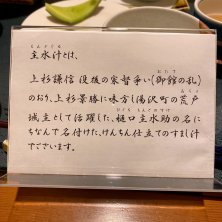 主水汁とは、
上杉謙信没後の家督争い(御館の乱)
のおり、上杉景勝に味方し湯沢町の荒戸
城主として活躍した、樋口主水助の名に
ちなんで名付けた、けんちん仕立てのすまし汁
でございます。